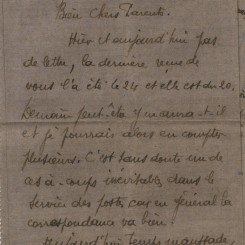 Bien Chers Parents.
Hier et aujourd'hui pas
de lettre, la dernière reçue de
vous l'a été le 24 et elle est du 20.
Demain peut-être y en aura-t-il
et je pourrais alors en compter
plusieurs. C'est sans doute un de
ces à-coups inévitables dans le
service des postes car en général la
correspondance va bien.
Aujourd'hui temps maussade